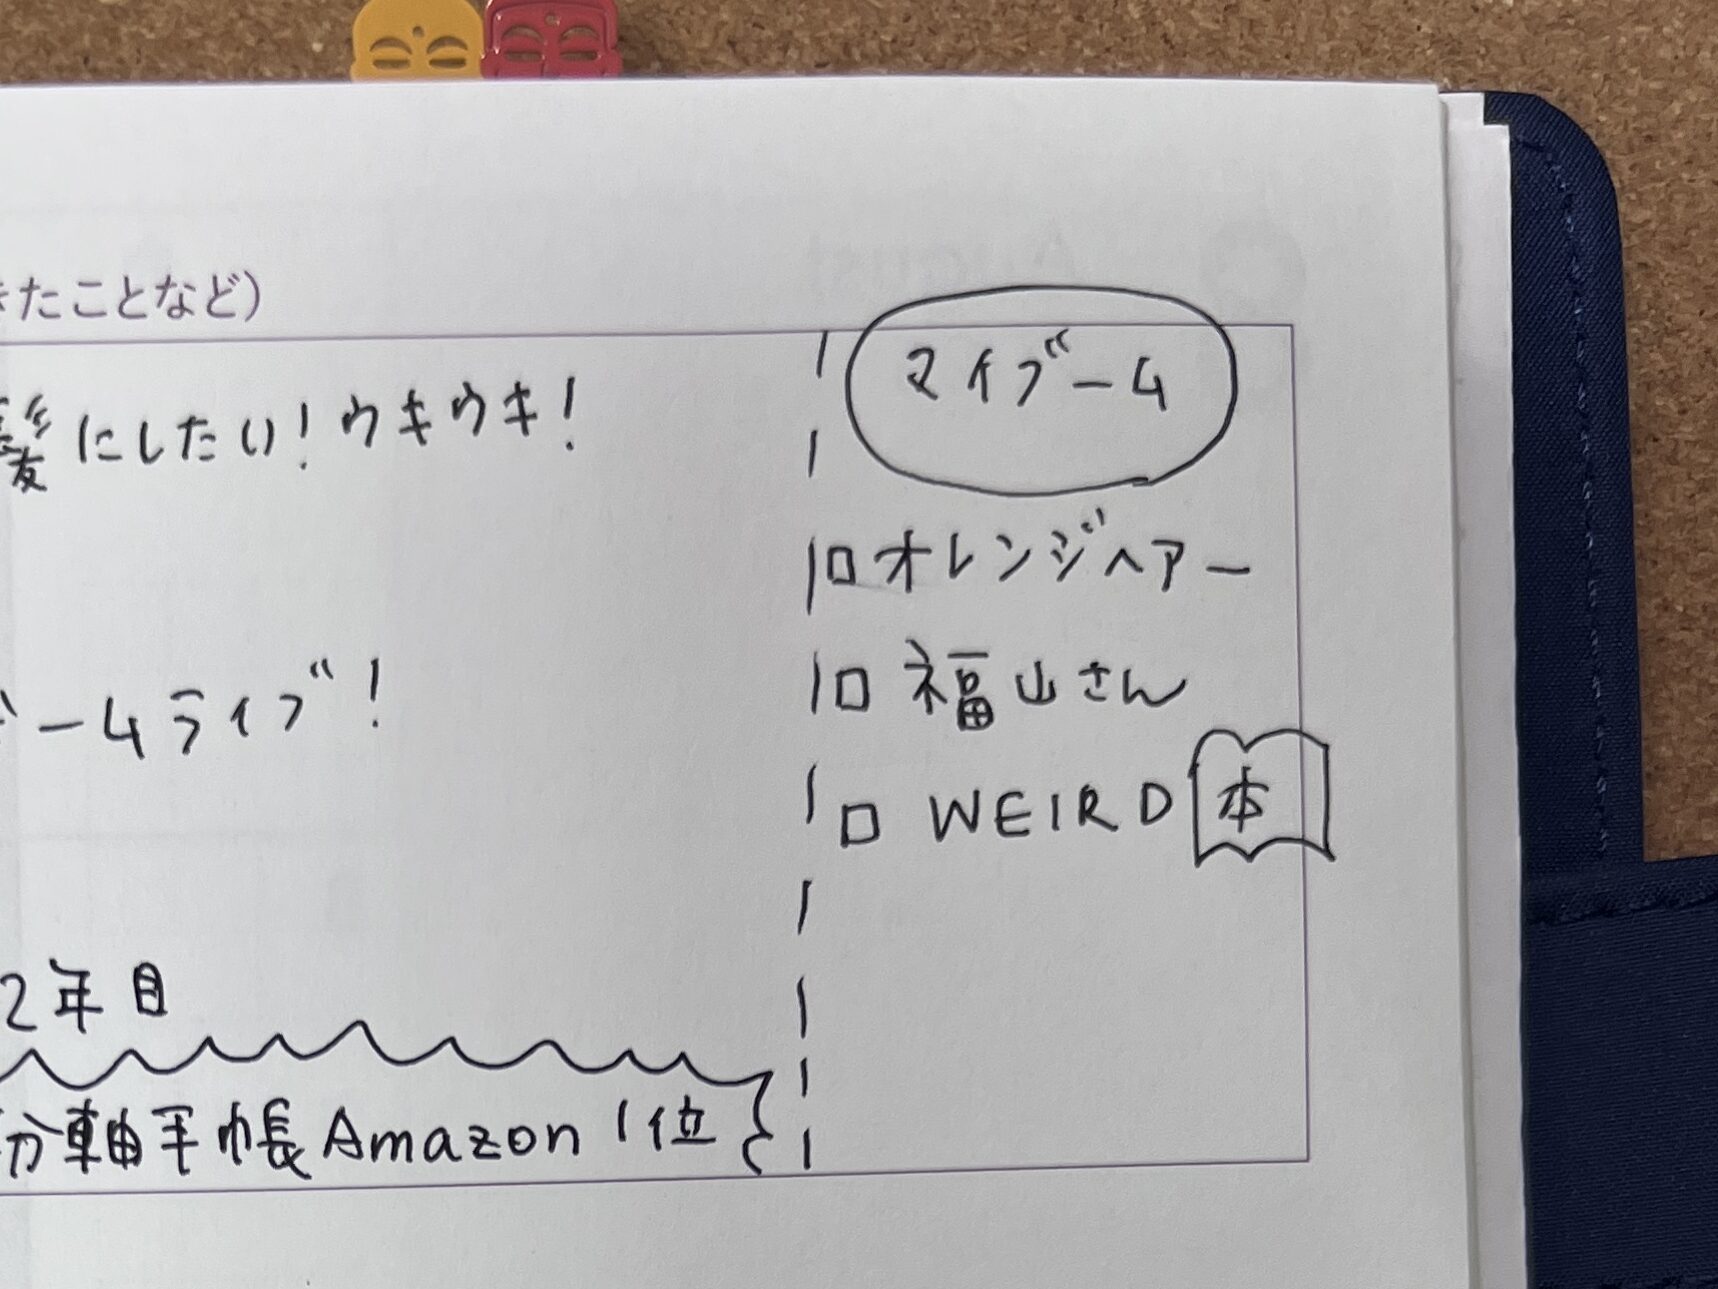 きたことなど)
髪にしたい!ウキウキ!
ームライブ!
2年目
分軸手帳Amazon1位
マイブーム
□オレンジヘアー
□福山さん
□WEIRD本